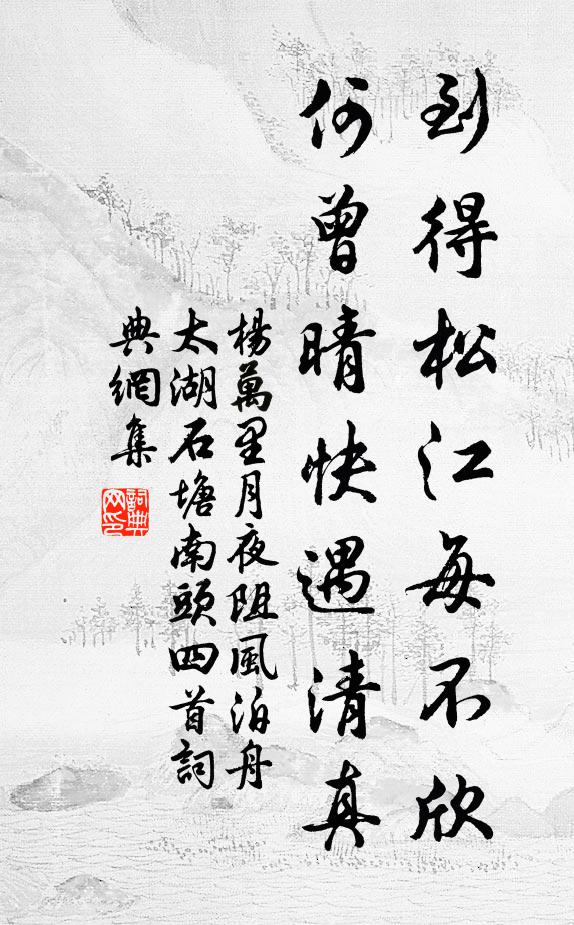 到得松江每不欣
何曾晴快遇清真
楊萬里月夜阻風泊舟
太湖石塘南頭四首詞
典網集
詞典
网印